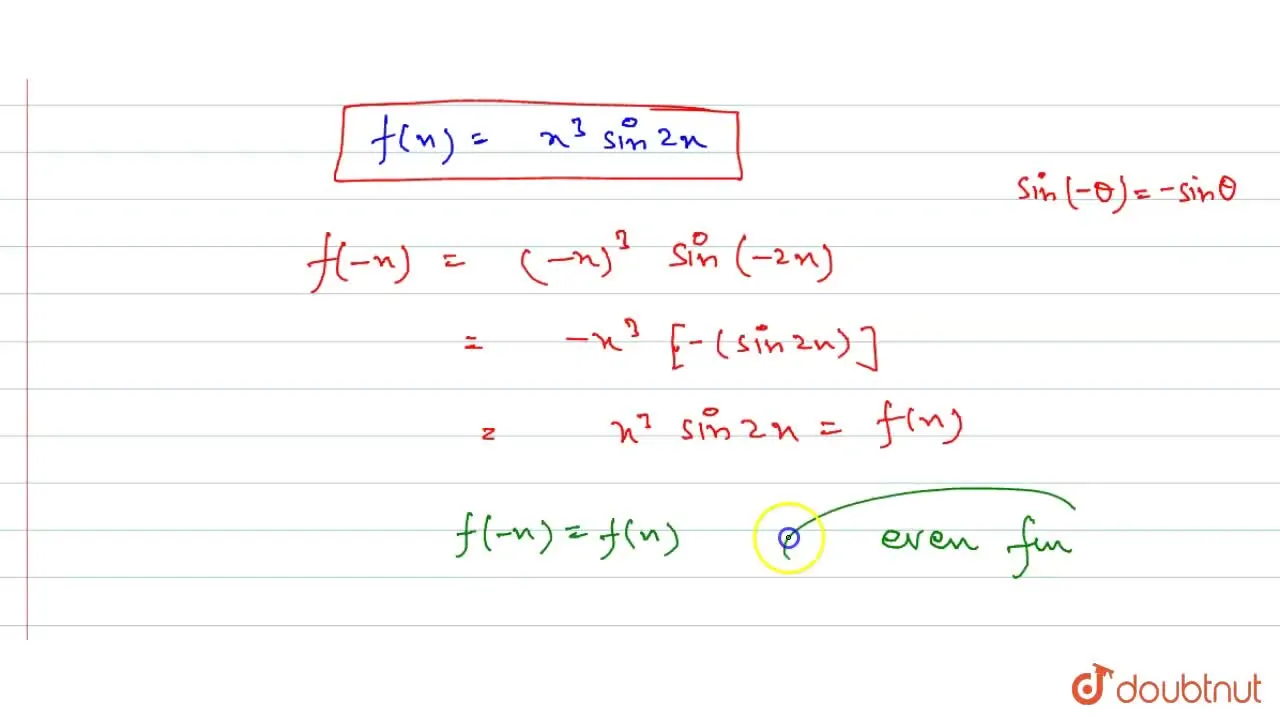 f(x) = x³ sin 2x
sin(-θ) = -sinθ
f(-x) = (-x)³ sin(-2x)
= -x³ [-(sin 2x)]
= x³ sin 2x = f(x)
f(-x) = f(x) even fun
doubtnut